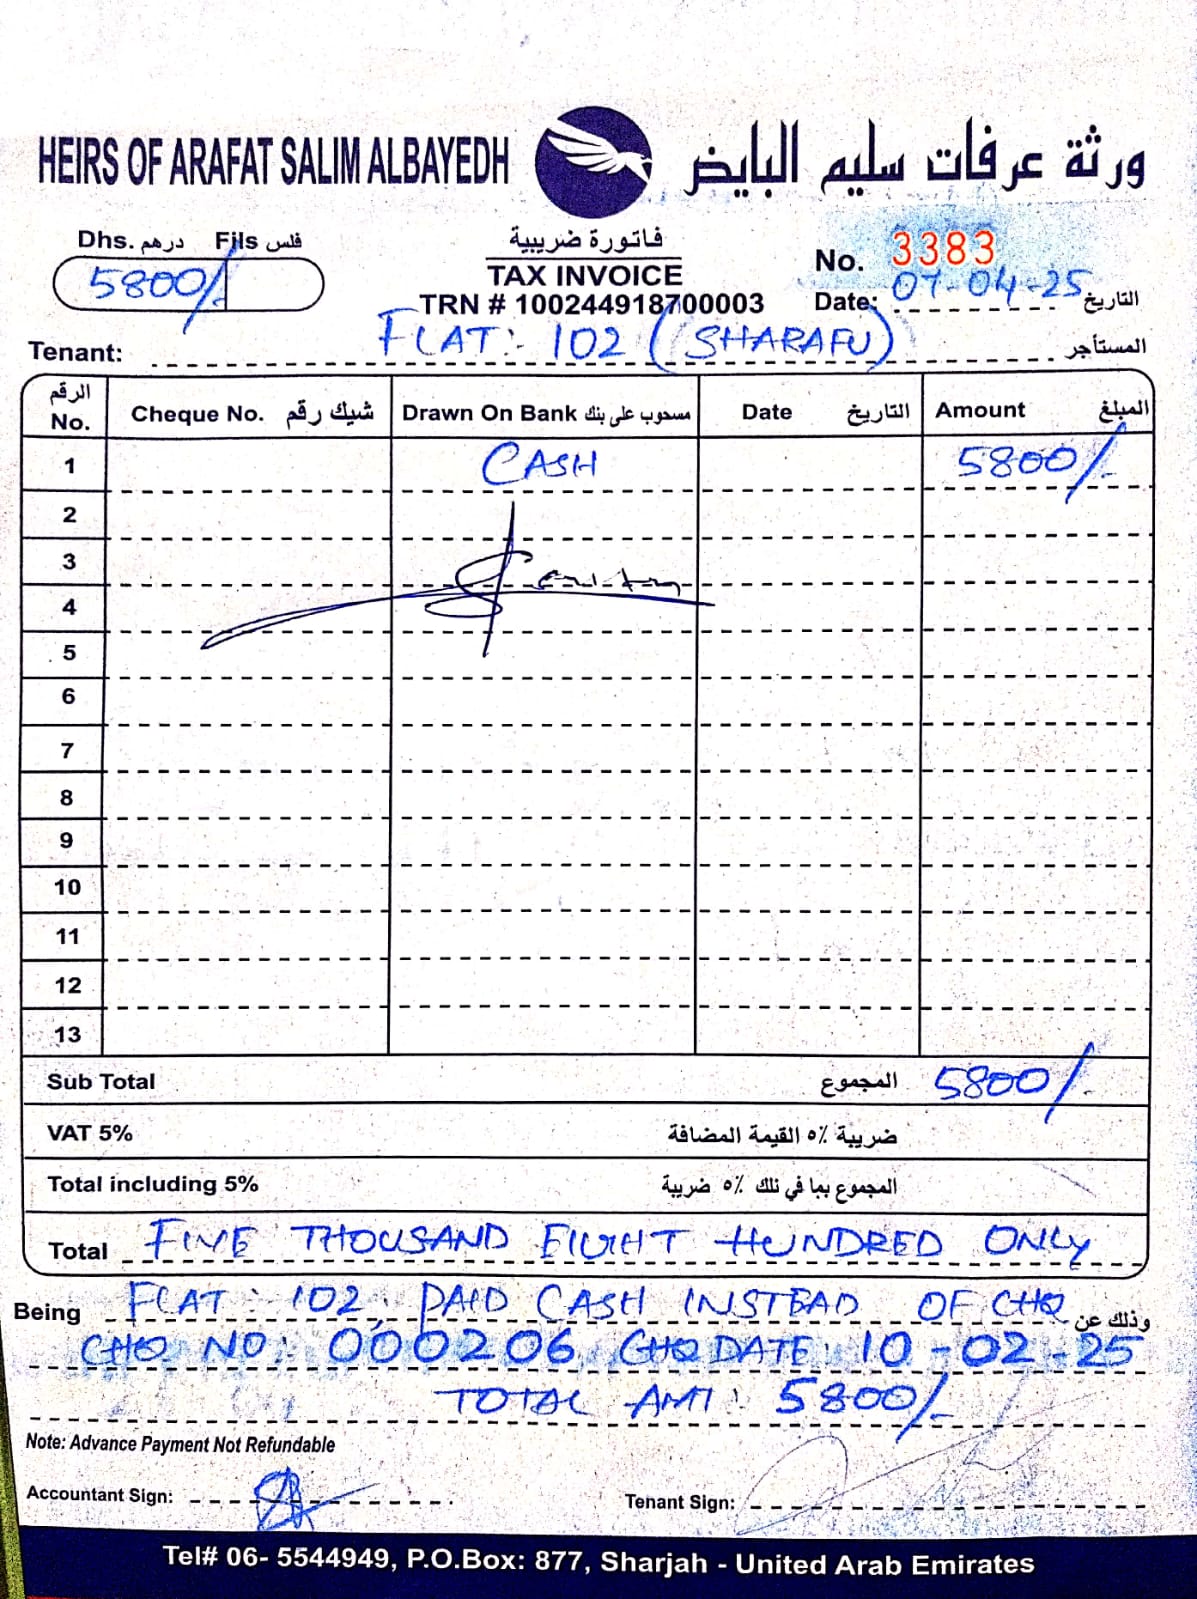 HEIRS OF ARAFAT SALIM ALBAYEDH ورثة عرفات سليم البايض
Dhs. درهم Fils فلس
5800/-
فاتورة ضريبية
TAX INVOICE
TRN # 100244918700003
No. 3383
Date: 07-04-25 التاريخ
Tenant: FLAT:- 102 (SHARAFU) المستأجر
الرقم No. Cheque No. شيك رقم Drawn On Bank مسحوب على بنك Date التاريخ Amount المبلغ
1 CASH 5800/-
2
3
4
5
6
7
8
9
10
11
12
13
Sub Total المجموع 5800/-
VAT 5% ضريبة ٥% القيمة المضافة
Total including 5% المجموع بما في ذلك ٥% ضريبة
Total FIVE THOUSAND EIGHT HUNDRED ONLY
Being FLAT: 102, PAID CASH INSTEAD OF CHQ وذلك عن
CHQ NO: 000206 CHQ DATE: 10-02-25
TOTAL AMT: 5800/-
Note: Advance Payment Not Refundable
Accountant Sign:
Tenant Sign:
Tel# 06- 5544949, P.O.Box: 877, Sharjah - United Arab Emirates